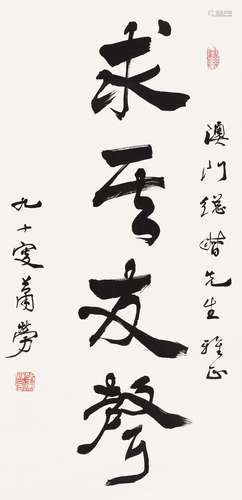 澳門先生雅正
求其友聲
九十叟蕭勞